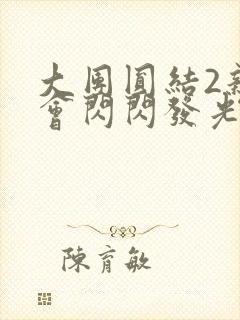 大團圓結2新
會閃閃發光
陳育敏